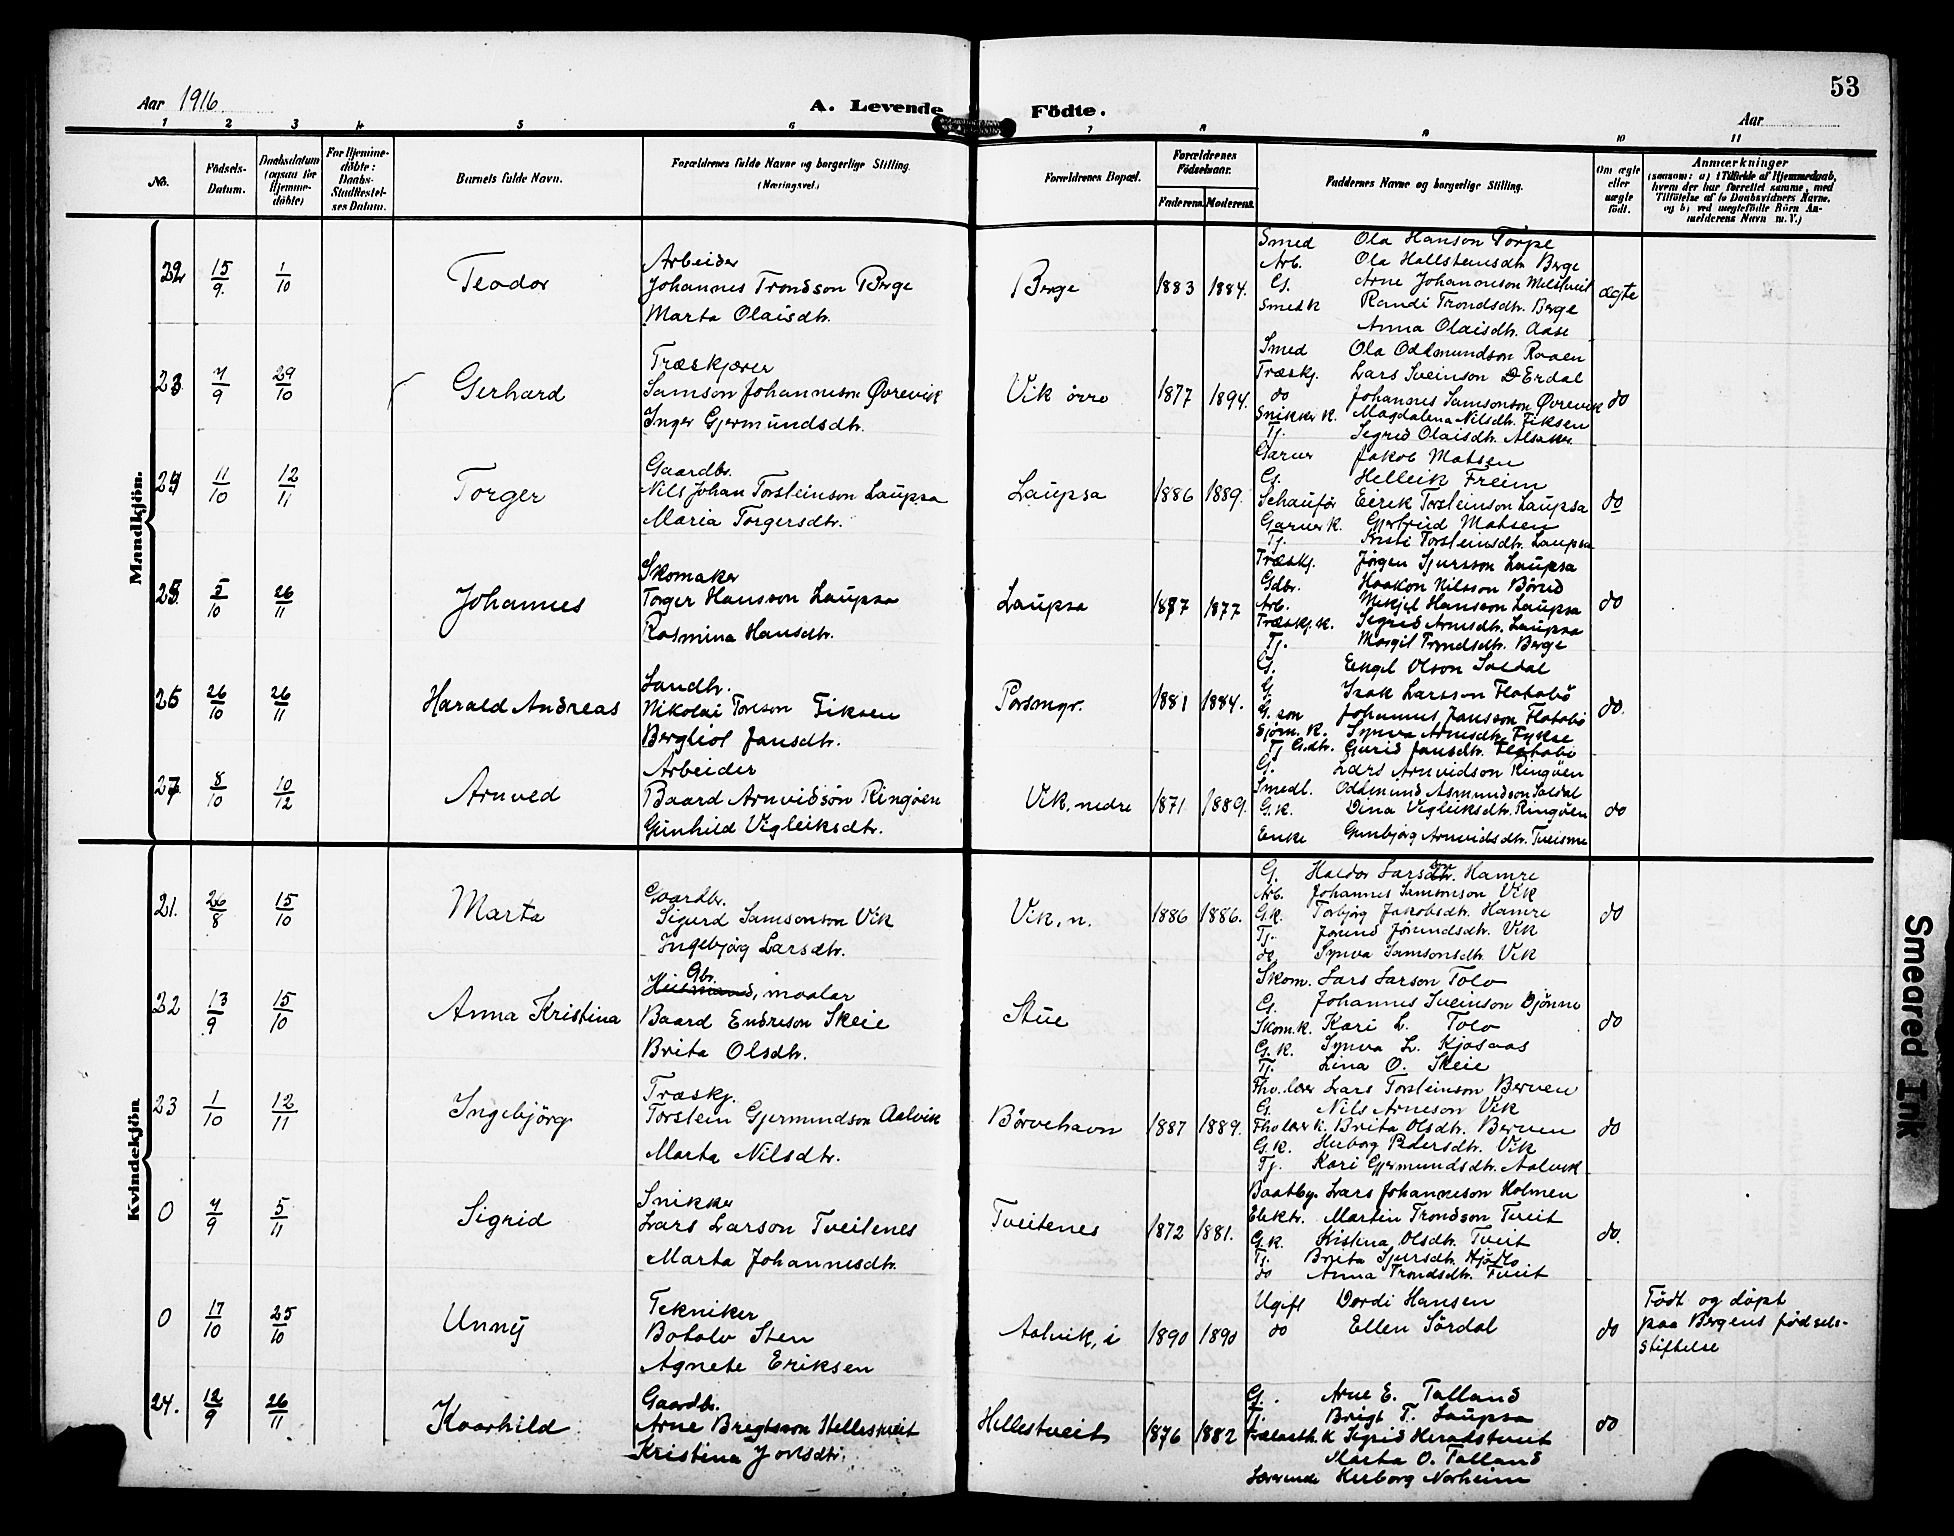 53
Aar 1916
A. Levende Födte.
Aar
1 2 3 4 5 6 7 8 9 10 11
No.
Födsels-Datum.
Daabsdatum (ogsaa for Hjemme-döbte)
For Hjemme-döbte: Daabs-Stadfæstel-ses Datum.
Barnets fulde Navn.
Forældrenes fulde Navne og borgerlige Stilling. (Næringsvei.)
Forældrenes Bopæl.
Forældrenes Födselsaar.
Faderens. Moderens.
Faddernes Navne og borgerlige Stilling.
Om ægte eller uægte födt.
Anmærkninger
(saasom: a) i Tilfælde af Hjemmedaab, hvem der har forrettet samme, med Tilföielse af to Daabsvidners Navne, og b) ved uægtefödte Börn An-melderens Navn m. V.)
Mandkjön.
22 15/9. 1/10 Teodor
Arbeider
Johannes Trondson Berge
Marta Olaisdtr.
Berge 1883 1884. ægte
Smed Ola Hanson Torpe
Arb. Ola Hallsteinsdtr. Berge
G. Arne Johanneson Melstveit
Smed k Randi Trondsdtr. Berge
Anna Olaisdtr. Aase
23 7/9 29/10 Gerhard
Træskjærer
Samson Johanneson Øvrevik
Inger Gjermundsdtr.
Vik övre 1877 1894. do
Smed Ola Oddmundson Raaen
Træskj. Lars Sveinson Erdal
do Johannes Samsonson Øvrevik
Snikker k. Magdalena Nilsdtr. Fiksen
Tj. Sigrid Olaisdtr. Alsaker
24 11/10 12/11 Torger
Gaardbr.
Nils Johan Torsteinson Laupsa
Maria Torgersdtr.
Laupsa 1886 1889. do
Garver Jakob Matsen
G. Helleik Freim
Schauför Eirik Torsteinson Laupsa
Garver k. Gjertrud Matsen
Tj. Kristi Torsteinsdtr. Laupsa
25 5/10 26/11 Johannes
Skomaker
Torger Hansson Laupsa
Rasmina Hansdtr.
Laupsa 1877 1877 do
Træskj. Jørgen Sjursson Laupsa
Gdbr. Haakon Nilsson Börud
Arb. Mikjel Hansson Laupsa
Træskj.k. Sigrid Arnesdtr. Laupsa
Tj. Margit Trondsdtr. Berge
26 26/10 26/11 Harald Andreas
Landh.
Nikolai Toreson Fiksen
Bergliot Jansdtr.
Porsmyr. 1881 1884. do.
G. Engel Olson Soldal
G. Isak Larsson Flotabö
G. son Johannes Jansson Flotabö
Sjöm. K. Synva Arnesdtr. Fykse
Tj G.dtr. Gurid Jansdtr. Flotabö
27 8/10 10/12 Arnved
Arbeider
Baard Arnvidsön Ringöen
Gunhild Vigleiksdtr.
Vik, nedre 1871 1889. do
G. Lars Arnvidson Ringöen
Smedl. Oddmund Asmundson Soldal
G.k. Dina Vigleiksdtr. Ringöen
Enke Gunbjørg Arnvidsdtr. Tveisme
Kvindekjön
21. 26/8 15/10 Marta
Gaardbr.
Sigurd Samsonson Vik
Ingebjörg Larsdtr.
Vik, n. 1886 1886. do
G. Haldor Larsson Hamre
Arb. Johannes Samsonson Vik
G.k. Torbjörg Jakobsdtr. Hamre
Tj. Jorund Jörundsdtr. Vik
do Synva Samsonsdtr. Vik
22 13/9 15/10 Anna Kristina
Gbr., maalar
Baard Endreson Skeie
Brita Olsdtr.
Stue do
Skom. Lars Larson Tolo
G. Johannes Sveinson Djönne
Skom.k. Kari L. Tolo
G.k. Synva L. Kjosaas
Tj. Lina O. Skeie
23 1/10 12/11 Ingebjörg
Træskj.
Torstein Gjermundson Aalvik
Marta Nilsdtr.
Börvehavn 1887 1889. do
Fhv.lærer Lars Torsteinson Berven
G. Nils Arneson Vik
Fhv.lærer k. Brita Olsdtr. Berven
G.k. Herborg Pedersdtr. Vik
Tj. Kari Gjermundsdtr. Aalvik
0 7/9 5/11 Sigrid
Snikker
Lars Larson Tveitenes
Marta Johannesdtr.
Tveitenes 1872 1881. do.
Baatby. Lars Johanneson Holmen
Elektr. Martin Trondson Tveit
G.k. Kistina Olsdtr. Tveit
Tj. Brita Sjursdtr. Hjöllo
do Anna Trondsdtr. Tveit
0 17/10 25/10 Unny
Tekniker
Botolv Sten
Agnete Eriksen
Aalvik, i 1890 1890 do
Ugift Dordi Hansen
do Ellen Sördal
Födt og döpt
paa Bergens födsels-
stiftelse
24. 12/9 26/11 Kvarhild
Gaardbr.
Arne Brigtsson Hellestveit
Kristina Joelsdtr.
Hellestveit 1876 1882 do
G. Arne E. Tolland
G. Brigt T. Laupsa
K Sigrid Heradstveit
Marta O. Tolland
Lærerinde Herborg Norheim
Smeared Ink